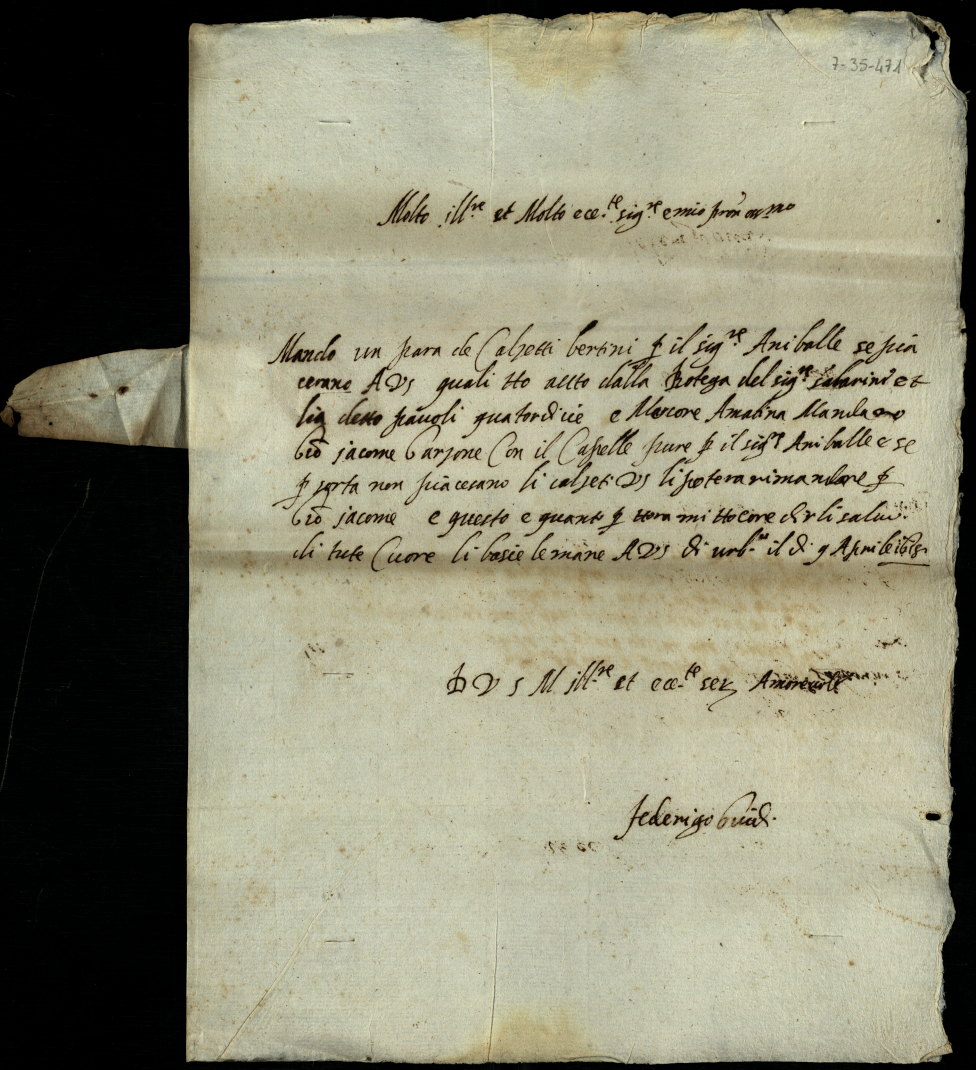 7-35-471
Molto ill.re et Molto ecc.te sig.re e mio pron
Mando un para de Calzetti bertini p il sig.re Aniballe se pia
cerano A VS quali tto dalla botega del sig.re et
detto pavoli quatordicie e Mercore Matina Mandamo
Gio jacome Garzone Con il Capelle pure p il sig.r Aniballe e se
p sorta non piacesano li calzeti VS li potera rimandare p
Gio jacome e questo e quanto p ora mi ttocore dirli
di tute Cuore li bascie le mane A VS di urb.no il di 9 Aprile
D V S M ill.re et ecc.te ser Amorevole
federigo Guidi